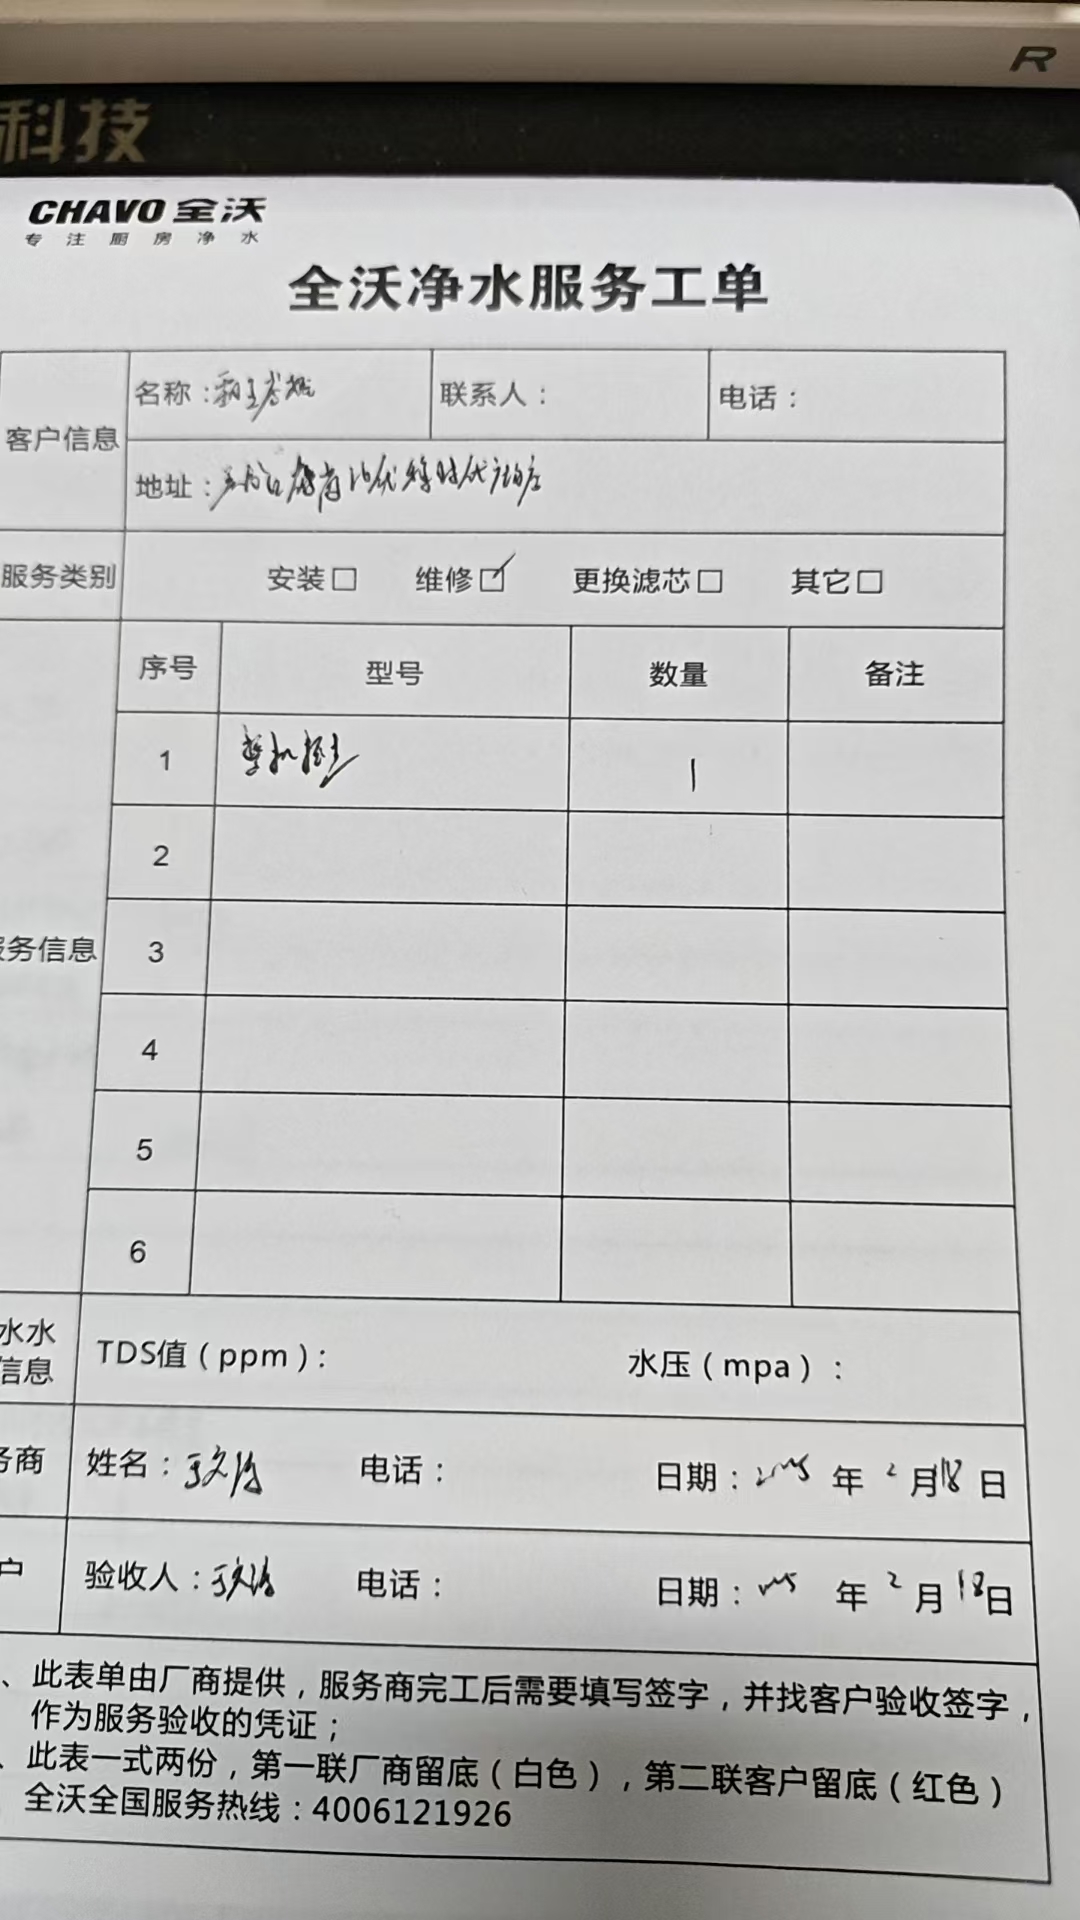 R
科技
CHAVO 全沃
专注厨房净水
全沃净水服务工单
客户信息 名称：霸王茶姬 联系人： 电话：
地址：
服务类别 安装□ 维修☑ 更换滤芯□ 其它□
序号 型号 数量 备注
1 整机 1
2
务信息 3
4
5
6
水水
信息 TDS值（ppm）： 水压（mpa）：
务商 姓名： 电话： 日期：2025 年 2 月 18 日
户 验收人： 电话： 日期：2025 年 2 月 18 日
、此表单由厂商提供，服务商完工后需要填写签字，并找客户验收签字，
作为服务验收的凭证；
、此表一式两份，第一联厂商留底（白色），第二联客户留底（红色）
全沃全国服务热线：4006121926